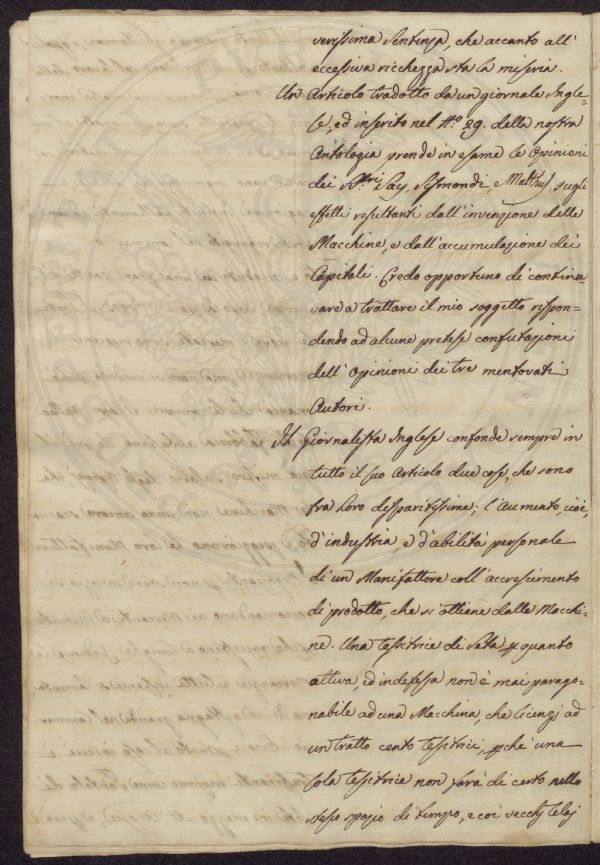 verissima Sentenza, che accanto all'
eccessiva ricchezza sta la miseria.
Un Articolo tradotto da un giornale Ingle=
se, ed inserito nel N.º 29. della nostra
Antologia prende in esame le Opinioni
dei SS.ri Say, Sismondi, e Malthus, sugli
effetti resultanti dall'invenzione delle
Macchine, e dall'accumulazione dei
Capitali. Credo opportuno di continu=
vare a trattare il mio soggetto rispon=
dendo ad alcune pretese confutazioni
dell'Opinioni dei tre mentovati
Autori.
Il Giornalista Inglese confonde sempre in
tutto il suo Articolo due cose, che sono
fra loro disparitissime; l'Aumento, cioè,
d'industria, e d'abilità personale
di un Manifattore coll'accrescimento
di prodotto, che si ottiene dalle Macchi=
ne. Una tessitrice di Seta p quanto
attiva, ed indefessa non è mai parago=
nabile ad una Macchina, che licenzj ad
un tratto cento tessitrici, pchè una
sola tessitrice non farà di certo nello
stesso spazio di tempo, e coi vecchj telaj